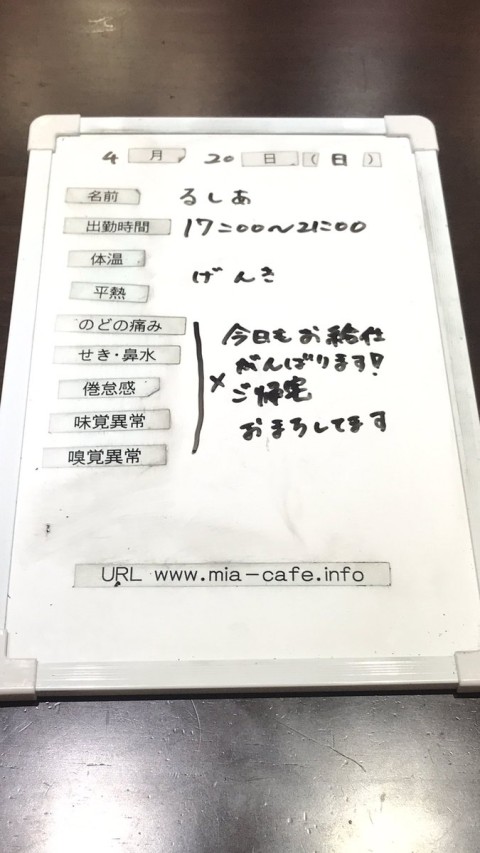 4月20日(日)
名前 るしあ
出勤時間 17:00〜21:00
体温
平熱 げんき
のどの痛み
せき・鼻水
倦怠感 ×
味覚異常
嗅覚異常
今日もお給仕
がんばります!
ご帰宅
おまちしてます
URL www.mia-cafe.info